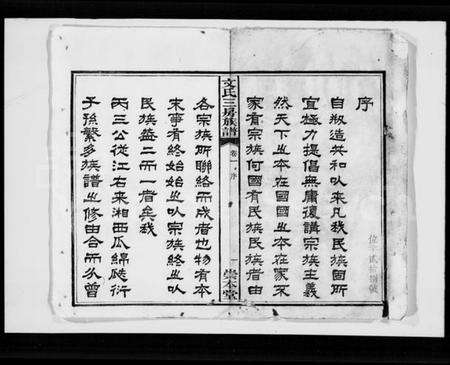 序
自叛造共和以來凡我民族固所
宜極力提倡無庸復講宗族主義
然天下之本在國國之本在家不
家有宗族何國有民族民族者由
文氏三房族譜
卷一 序
一
崇本堂
各宗族所聯絡而成者也物有本
末事有終始始之以宗族終之以
民族蓋二而一者矣我
丙三公從江右來湘西瓜綿瓞衍
子孫繁多族譜之修由合而分曾